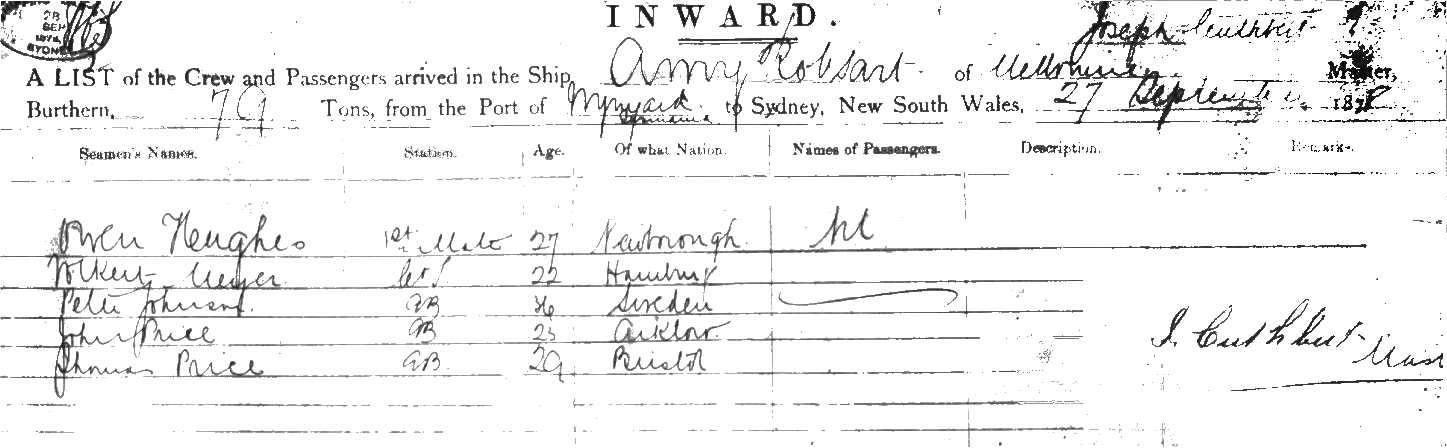 28
SEP
1878
SYDNEY
INWARD.
Joseph Cuthbert
A LIST of the Crew and Passengers arrived in the Ship, Amy Robsart of Melbourne Master,
Burthern, 79 Tons, from the Port of Wynyard Tasmania to Sydney, New South Wales, 27 September 1878
Seamen's Names. Station. Age. Of what Nation. Names of Passengers. Description. Remarks.
Owen Heughes 1st Mate 27 Newborough Nil
Volkert Meyer 22 Hamburg
Peter Johnson AB 36 Sweden
John Price AB 23 Arklow
Thomas Price AB 29 Bristol
J. Cuthbert